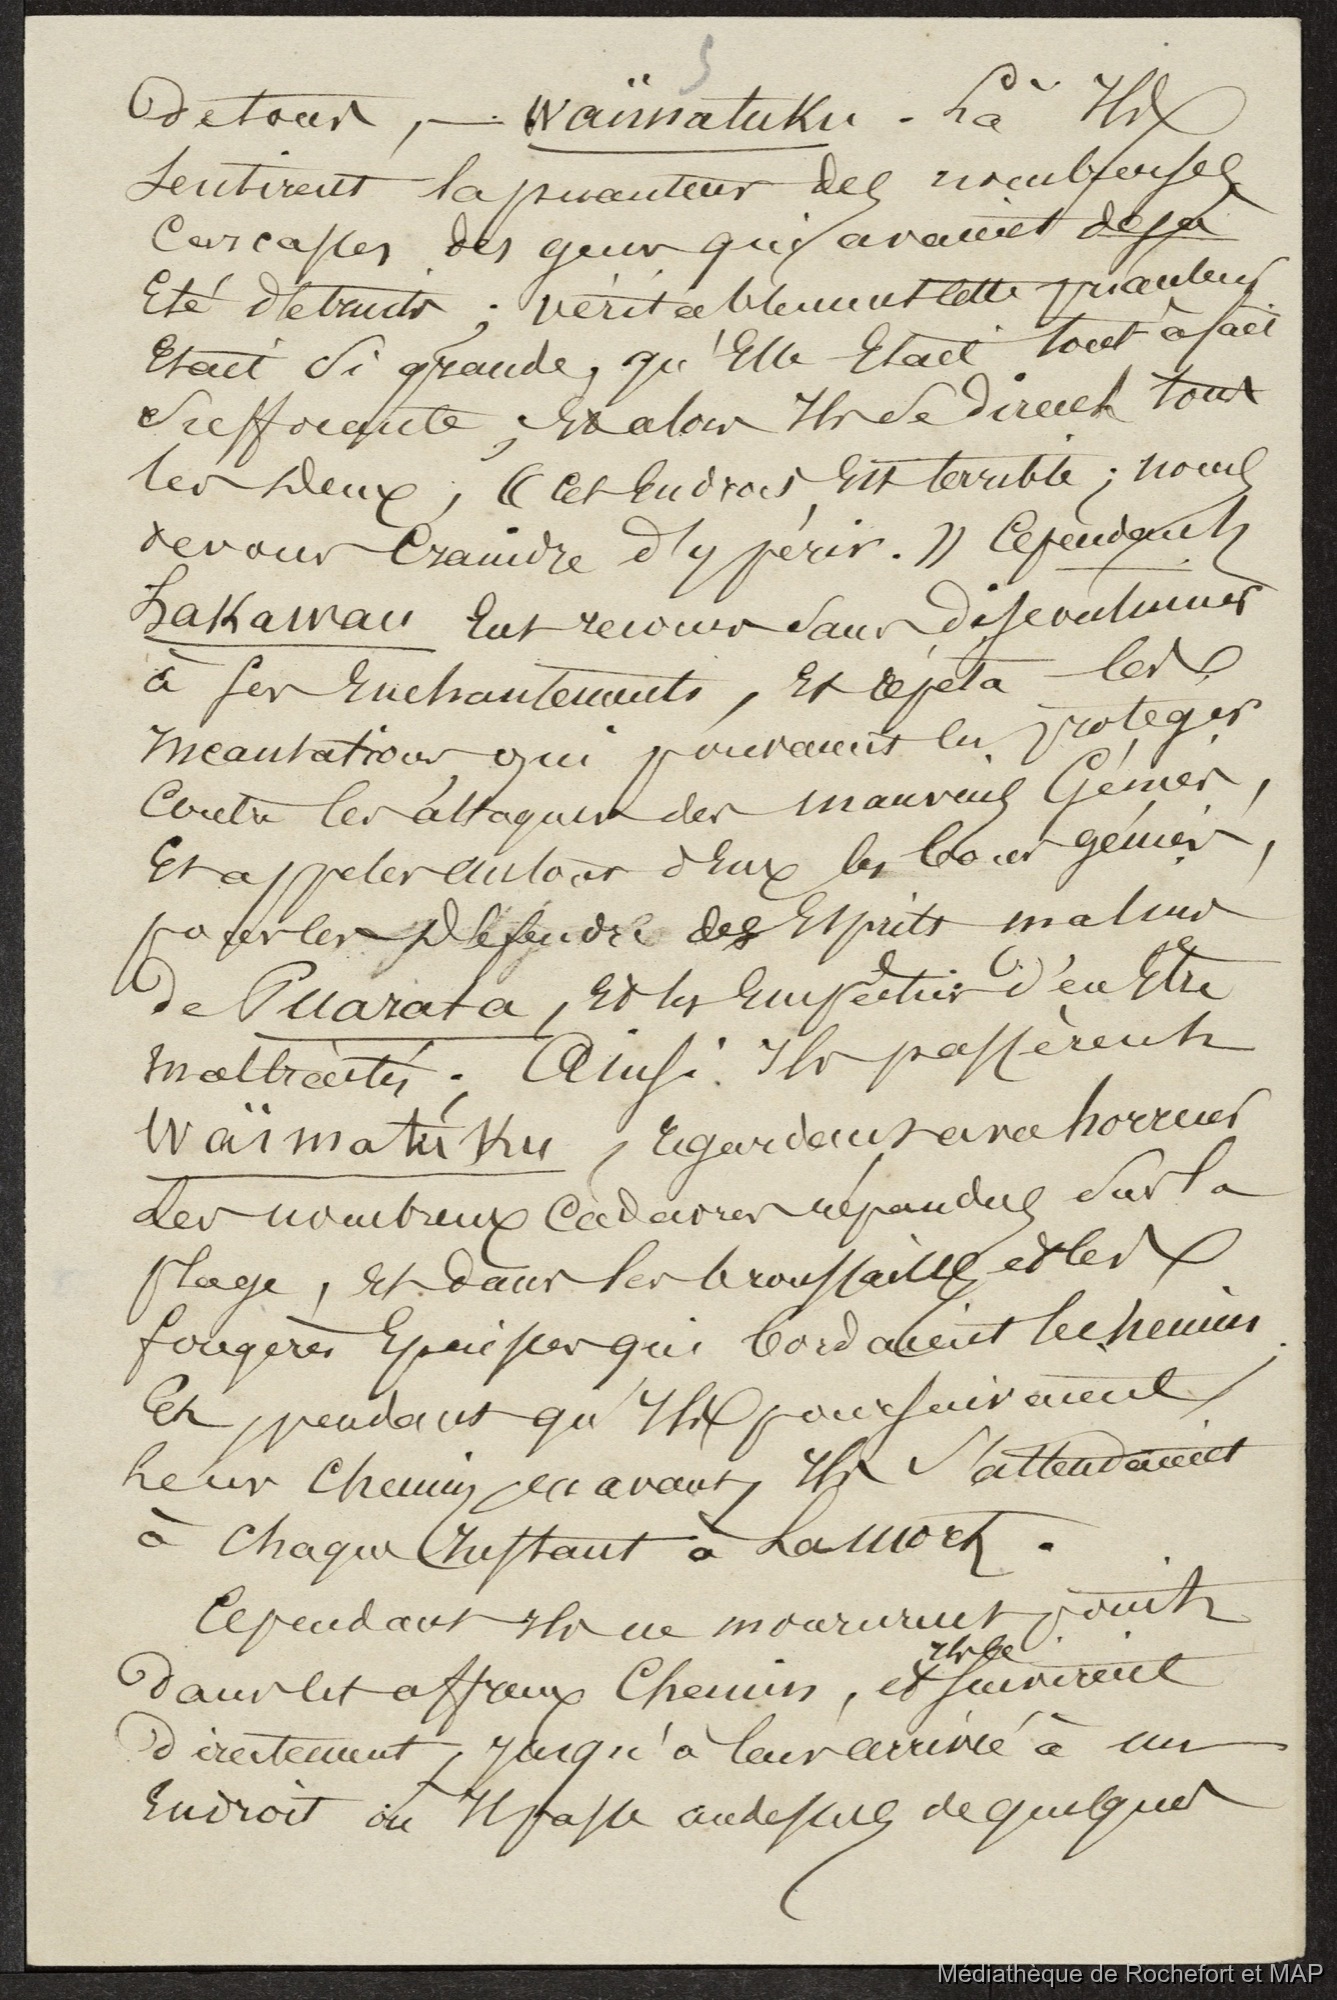 5
Detour, — Waïmatuku - Là Ils
Sentirent la puanteur des nombreuses
Carcasses des gens qui avaient deja
Eté détruits ; véritablement cette puanteur
Etait si grande, qu'Elle Etait tout à fait
Suffocante ; Et alors Ils se dirent tous
les Deux, « Cet Endroit Est terrible ; nous
devons Craindre d'y périr. » Cependant
Hakawau Eut recours sans discontinuer
à ses Enchantements, Et répéta les
Incantations qui pouvaient les protéger
Contre les attaques des mauvais Génies,
Et appeler autour d'Eux les bons génies,
pour les Défendre des Esprits malins
de Puarata, Et les Empêcher d'en Etre
maltraités. Ainsi Ils passèrent
Waïmatuku, regardant avec horreur
Les nombreux Cadavres répandus sur la
plage, Et dans les broussailles et les
fougères Epaisses qui bordaient le chemin.
Et pendant qu'Ils poursuivaient
Leur Chemin en avant, Ils s'attendaient
à Chaque Instant à La Mort.
Cependant Ils ne moururent point
Dans cet affreux Chemin, et Ils le suivirent
Directement, jusqu'à leur arrivée à un
Endroit où Il passe au dessus de quelques
Médiathèque de Rochefort et MAP